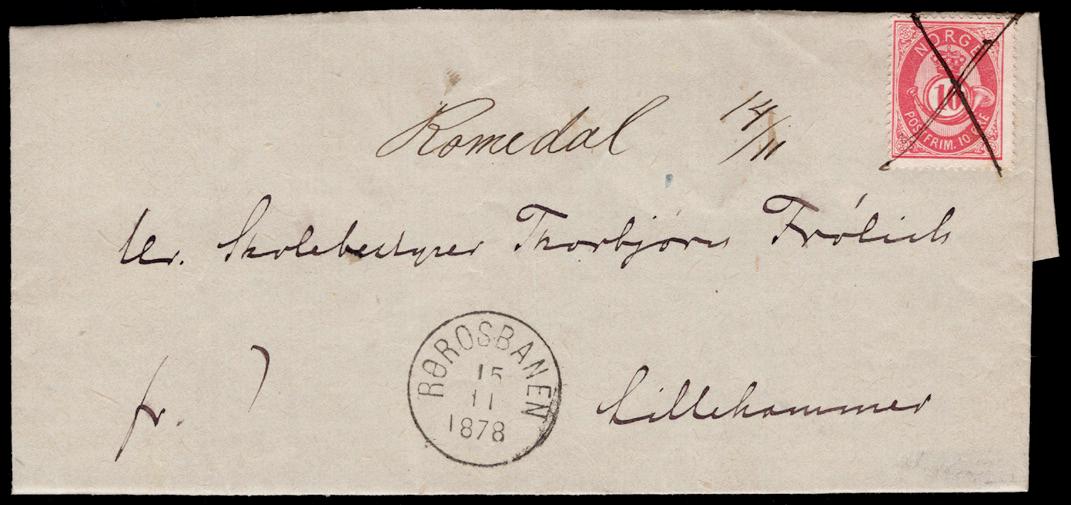 NORGE
10
POSTFRIM. 10 ØRE
Romedal 14/11
Hr. Skolebestyrer Thorbjørn Frölich
RØROSBANEN
15
11
1878
fr.
Lillehammer